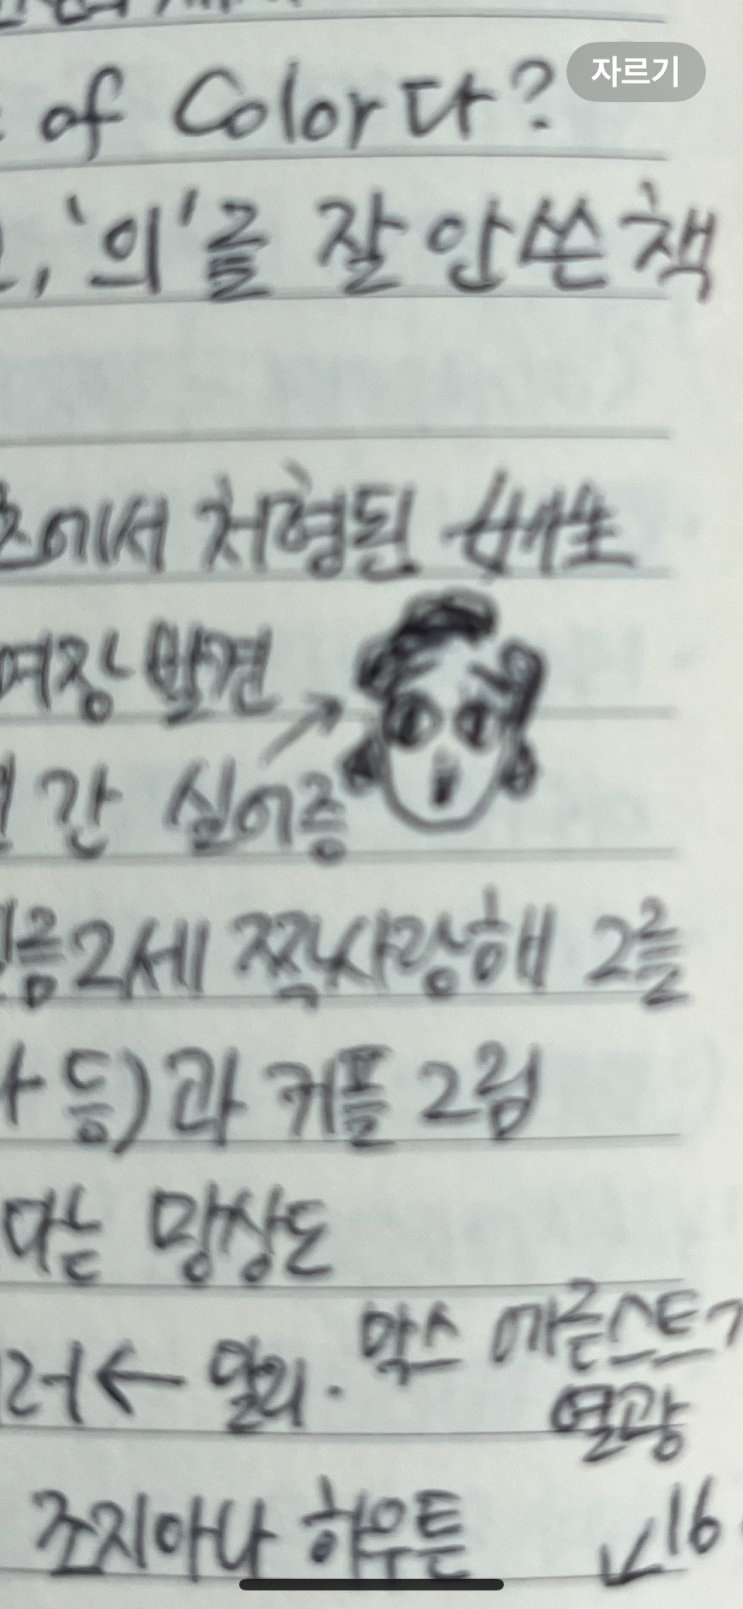 of Color다?
자르기
, '의'를 잘 안 쓴 책
에서 처형된 女性
여장 발견
간 실어증
름2세 짝사랑해 그를
등)과 커플 그림
다는 망상도
그러 ← 달리. 막스 에른스트가
열광
조지아나 하우튼
↙16